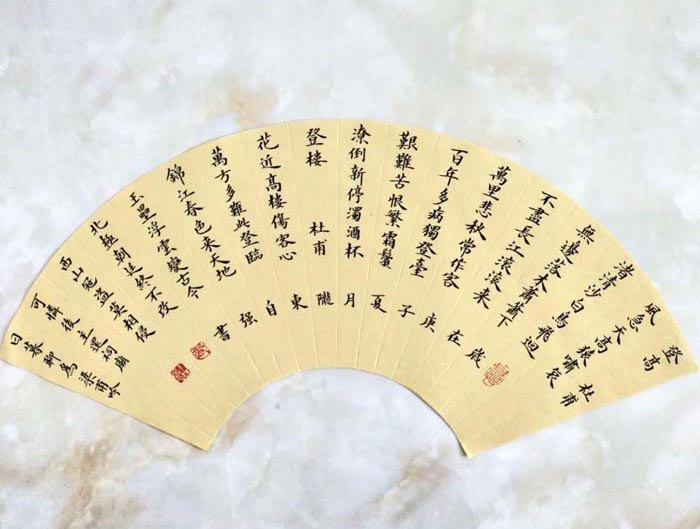 登高 杜甫
風急天高狼嘯哀
渚清沙白鳥飛迴
無邊落木蕭蕭下
不盡長江滚滚来
萬里悲秋常作客
百年多病獨登臺
艱難苦恨繁霜鬢
潦倒新停濁酒杯
登楼 杜甫
花近高樓傷客心
萬方多難此登臨
錦江春色来天地
玉壘浮雲變古今
北極朝廷終不改
西山寇盗莫相侵
可憐後主還祠廟
日暮聊為梁甫吟
歲在庚子夏月隴東自强書